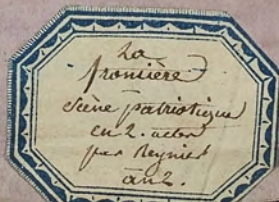 La
fronière
Scène patriotique
en 2. actes
par Regnier
an 2.